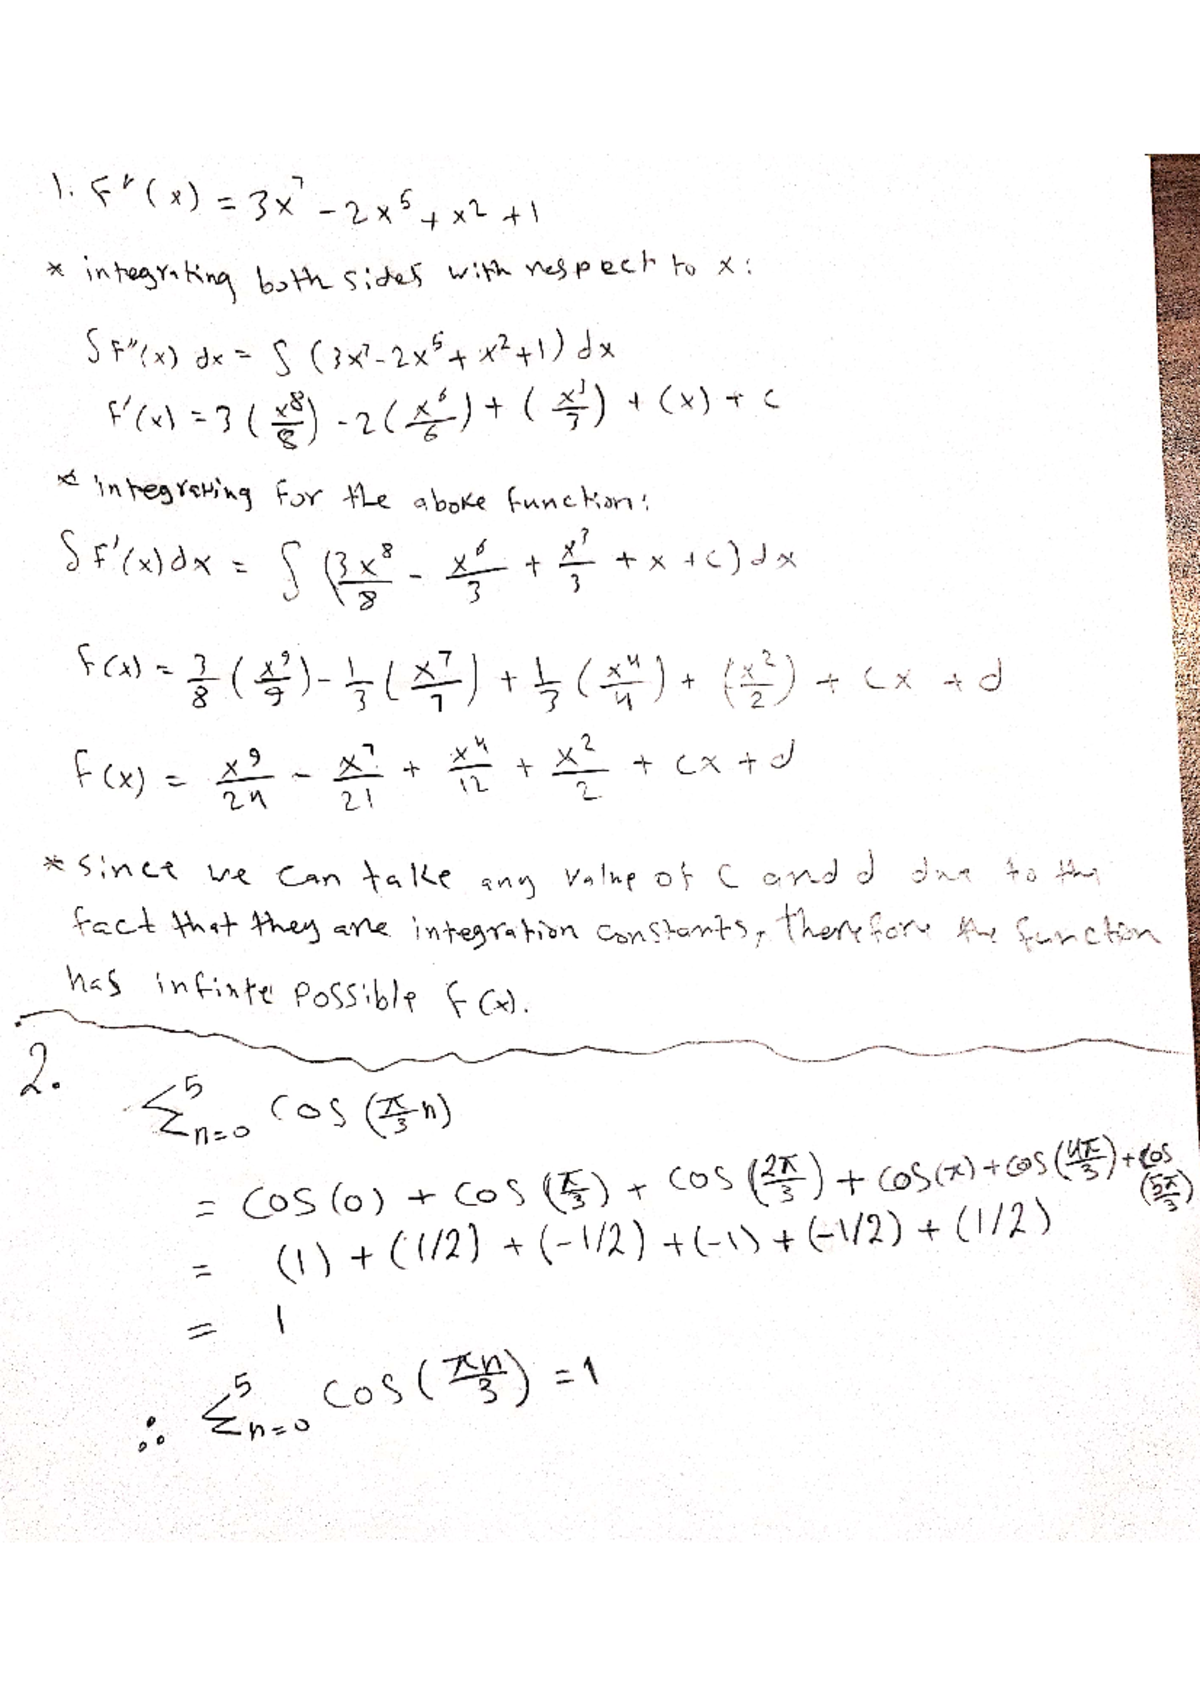 1. F''(x) = 3x⁷ - 2x⁵ + x² + 1
* integrating both sides with respect to x:
∫F''(x) dx = ∫ (3x⁷ - 2x⁵ + x² + 1) dx
F'(x) = 3(x⁸/8) - 2(x⁶/6) + (x³/3) + (x) + c
* integrating for the above function:
∫F'(x)dx = ∫ (3x⁸/8 - x⁶/3 + x³/3 + x + c) dx
F(x) = 3/8 (x⁹/9) - 1/3 (x⁷/7) + 1/3 (x⁴/4) + (x²/2) + cx + d
F(x) = x⁹/24 - x⁷/21 + x⁴/12 + x²/2 + cx + d
* since we can take any value of c and d due to the
fact that they are integration constants, therefore the function
has infinte possible f(x).
2.
Σ⁵ₙ₌₀ cos (π/3 n)
= cos(0) + cos (π/3) + cos (2π/3) + cos(π) + cos (4π/3) + cos (5π/3)
= (1) + (1/2) + (-1/2) + (-1) + (-1/2) + (1/2)
= 1
∴ Σ⁵ₙ₌₀ cos (πn/3) = 1